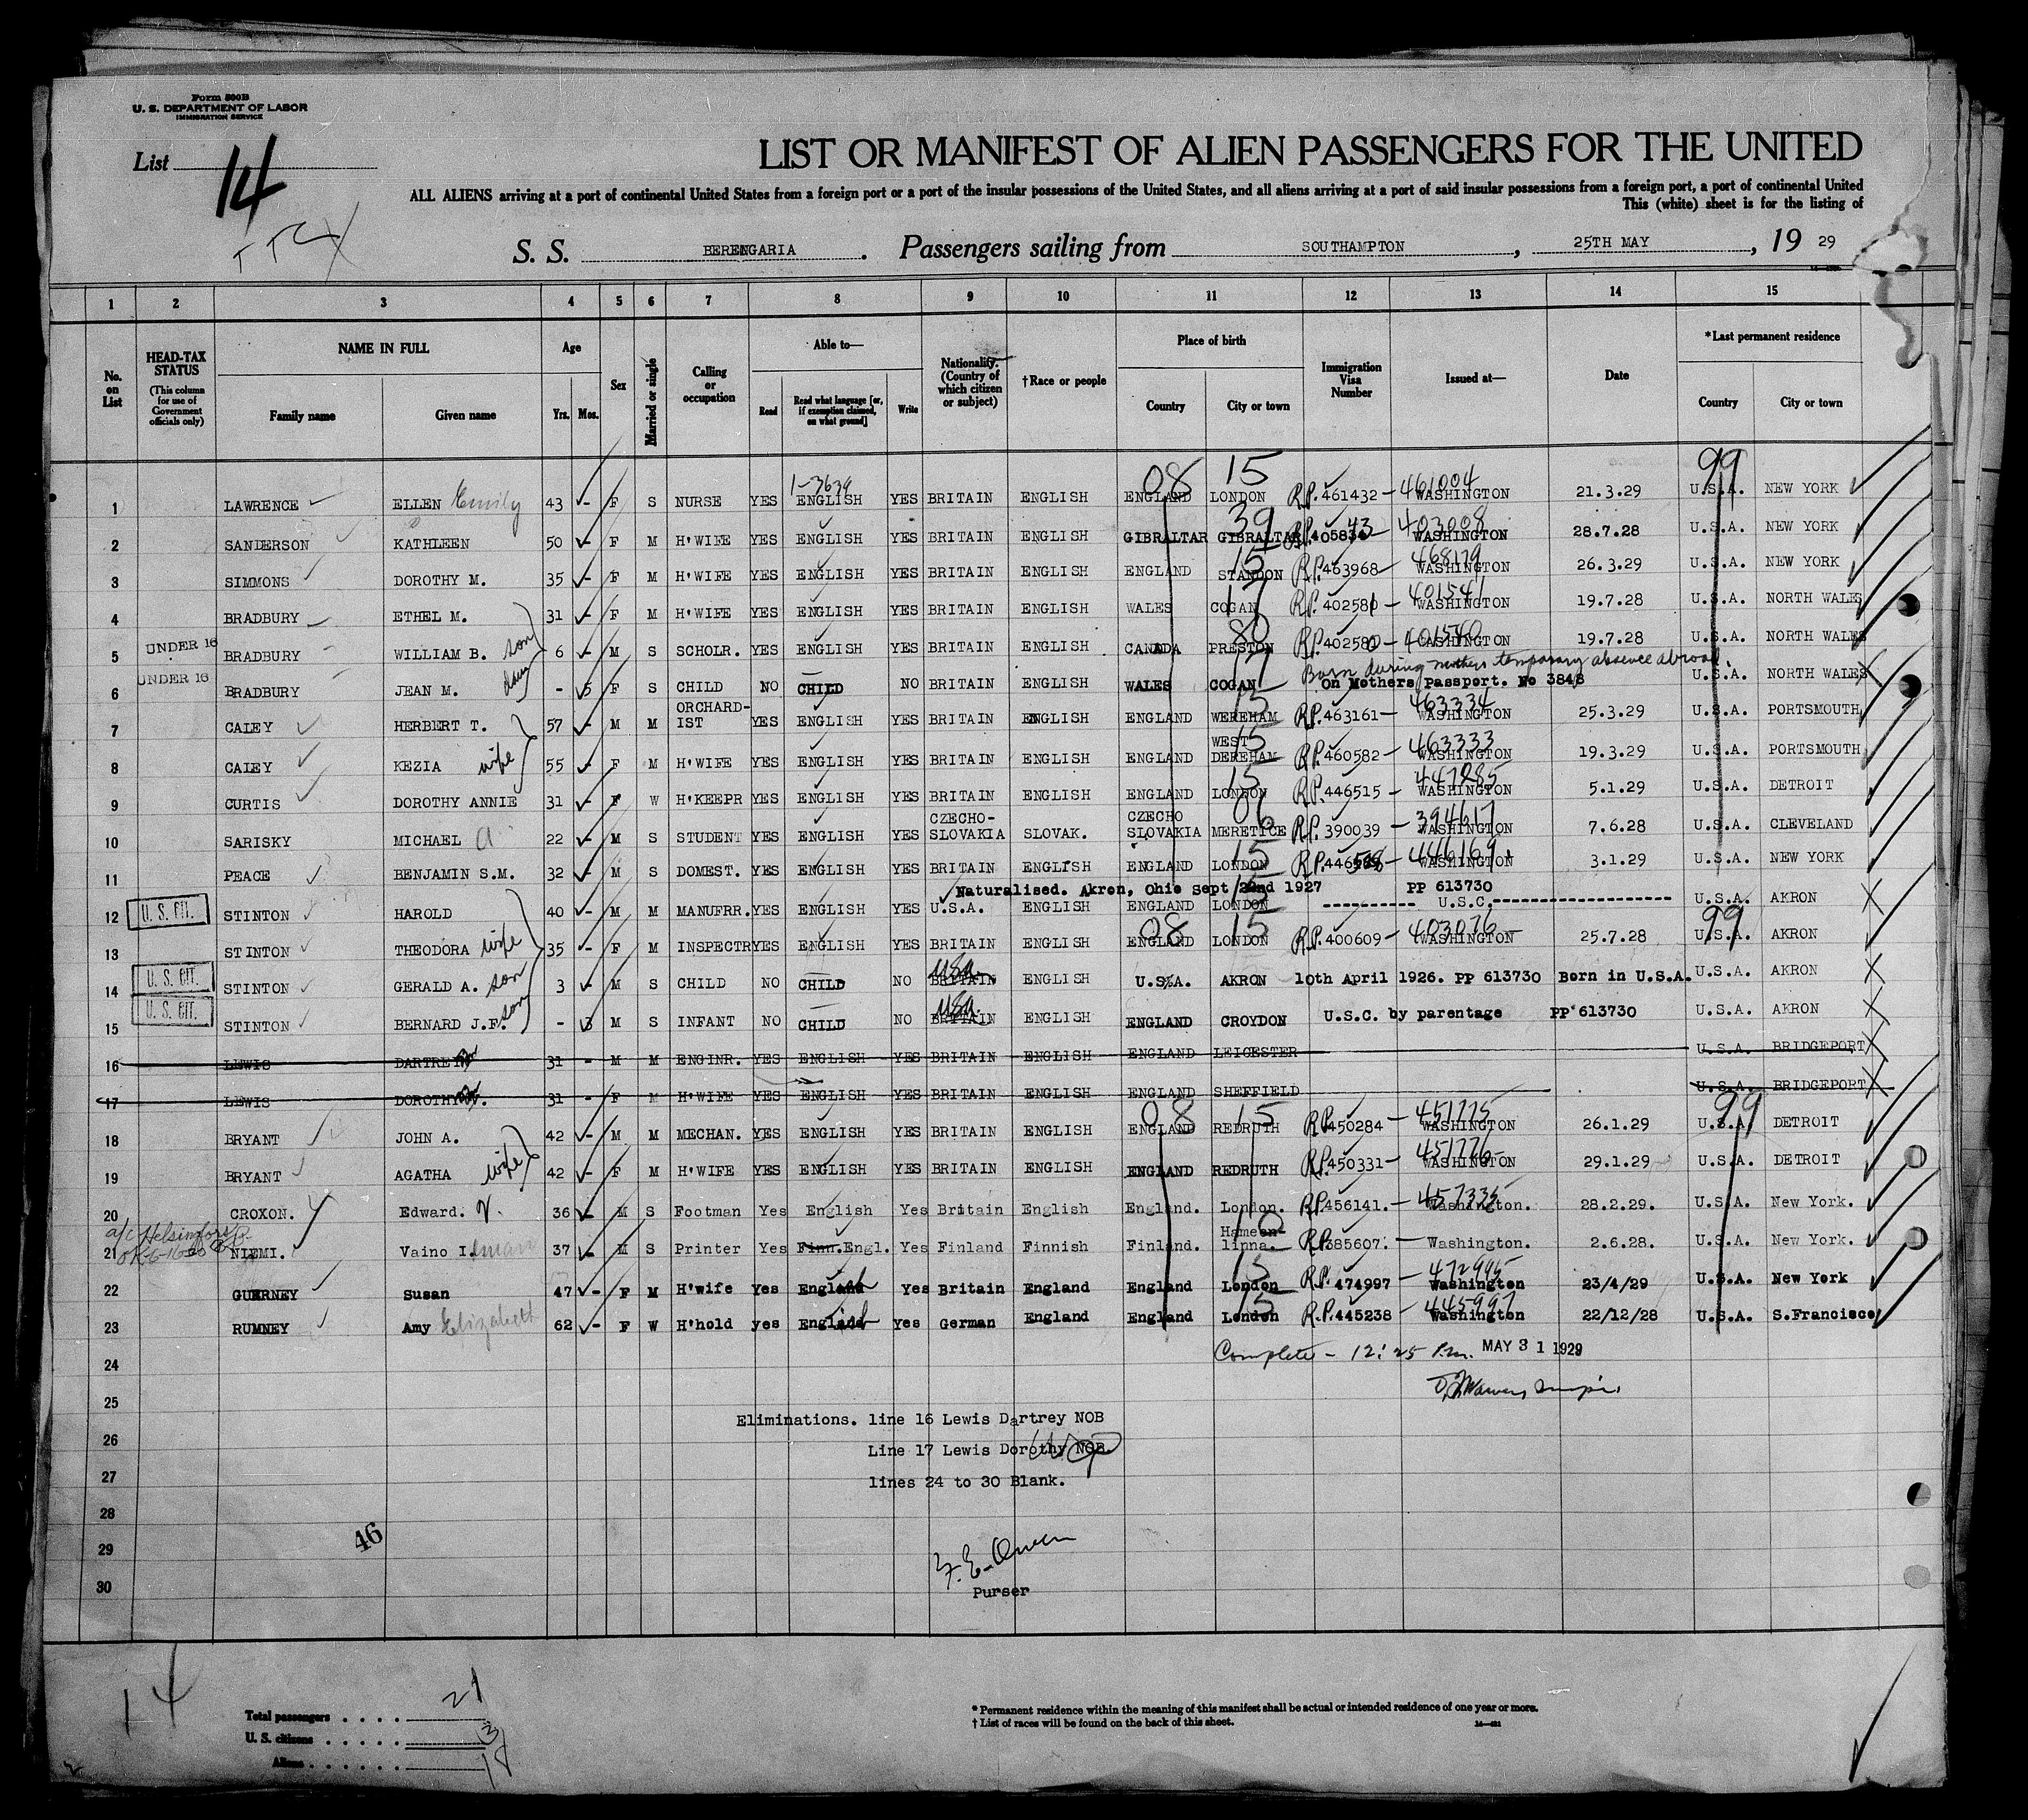 Form 500B
U. S. DEPARTMENT OF LABOR
IMMIGRATION SERVICE
List 14
LIST OR MANIFEST OF ALIEN PASSENGERS FOR THE UNITED
ALL ALIENS arriving at a port of continental United States from a foreign port or a port of the insular possessions of the United States, and all aliens arriving at a port of said insular possessions from a foreign port, a port of continental United
This (white) sheet is for the listing of
S. S. BERENGARIA . Passengers sailing from SOUTHAMPTON , 25TH MAY , 19 29
1 2 3 4 5 6 7 8 9 10 11 12 13 14 15
No. on List HEAD-TAX STATUS (This column for use of Government officials only) NAME IN FULL Family name Given name Age Yrs. Mos. Sex Married or single Calling or occupation Able to— Read Read what language [or, if exemption claimed, on what ground] Write Nationality. (Country of which citizen or subject) †Race or people Place of birth Country City or town Immigration Visa Number Issued at— Date *Last permanent residence Country City or town
08 15 99
1-3639
1 LAWRENCE ELLEN Emily 43 - F S NURSE YES ENGLISH YES BRITAIN ENGLISH ENGLAND LONDON R.P. 461432 - 461004 WASHINGTON 21.3.29 U.S.A. NEW YORK
2 SANDERSON KATHLEEN 50 - F M H'WIFE YES ENGLISH YES BRITAIN ENGLISH GIBRALTAR GIBRALTAR 39 R.P. 403008 WASHINGTON 28.7.28 U.S.A. NEW YORK
3 SIMMONS DOROTHY M. 35 - F M H'WIFE YES ENGLISH YES BRITAIN ENGLISH ENGLAND STANDON 15 R.P. 463968 - 468179 WASHINGTON 26.3.29 U.S.A. NEW YORK
4 BRADBURY ETHEL M. 31 - F M H'WIFE YES ENGLISH YES BRITAIN ENGLISH WALES COGAN 17 R.P. 402581 - 401541 WASHINGTON 19.7.28 U.S.A. NORTH WALES
5 UNDER 16 BRADBURY WILLIAM B. son 6 - M S SCHOLR. YES ENGLISH YES BRITAIN ENGLISH CANADA PRESTON 80 R.P. 402580 - 401540 WASHINGTON 19.7.28 U.S.A. NORTH WALES
Born during mothers temporary absence abroad.
6 UNDER 16 BRADBURY JEAN M. dau - 5 F S CHILD NO CHILD NO BRITAIN ENGLISH WALES COGAN 17 On Mothers Passport. No 3848 U.S.A. NORTH WALES
7 CALEY HERBERT T. 57 - M M ORCHARD-IST YES ENGLISH YES BRITAIN ENGLISH ENGLAND WEREHAM 15 R.P. 463161 - 463334 WASHINGTON 25.3.29 U.S.A. PORTSMOUTH
8 CALEY KEZIA wife 55 - F M H'WIFE YES ENGLISH YES BRITAIN ENGLISH ENGLAND WEST DEREHAM 15 R.P. 460582 - 463333 WASHINGTON 19.3.29 U.S.A. PORTSMOUTH
9 CURTIS DOROTHY ANNIE 31 - F W H'KEEPR YES ENGLISH YES BRITAIN ENGLISH ENGLAND LONDON 15 R.P. 446515 - 447885 WASHINGTON 5.1.29 U.S.A. DETROIT
10 SARISKY MICHAEL A 22 - M S STUDENT YES ENGLISH YES CZECHO-SLOVAKIA SLOVAK. CZECHO SLOVAKIA MERETICE 06 R.P. 390039 - 394617 WASHINGTON 7.6.28 U.S.A. CLEVELAND
11 PEACE BENJAMIN S.M. 32 - M S DOMEST. YES ENGLISH YES BRITAIN ENGLISH ENGLAND LONDON 15 R.P. - 446169 WASHINGTON 3.1.29 U.S.A. NEW YORK
Naturalised. Akron, Ohio Sept 22nd 1927 PP 613730
12 U. S. CIT. STINTON HAROLD 40 - M M MANUFRR. YES ENGLISH YES U.S.A. ENGLISH ENGLAND LONDON 15 ---------- U.S.C.------------------- U.S.A. AKRON
08 15 99
13 STINTON THEODORA wife 35 - F M INSPECTR YES ENGLISH YES BRITAIN ENGLISH ENGLAND LONDON R.P. 400609 - 403076 WASHINGTON 25.7.28 U.S.A. AKRON
14 U. S. CIT. STINTON GERALD A. son 3 - M S CHILD NO CHILD NO BRITAIN USA ENGLISH U.S.A. AKRON 10th April 1926. PP 613730 Born in U.S.A. U.S.A. AKRON
15 U. S. CIT. STINTON BERNARD J.F. son - 3 M S INFANT NO CHILD NO BRITAIN USA. ENGLISH ENGLAND CROYDON U.S.C. by parentage PP 613730 U.S.A. AKRON
16 LEWIS DARTREY 31 - M M ENGINR. YES ENGLISH YES BRITAIN ENGLISH ENGLAND LEICESTER U.S.A. BRIDGEPORT
17 LEWIS DOROTHY 31 - F M H'WIFE YES ENGLISH YES BRITAIN ENGLISH ENGLAND SHEFFIELD U.S.A. BRIDGEPORT
08 15 99
18 BRYANT JOHN A. 42 - M M MECHAN. YES ENGLISH YES BRITAIN ENGLISH ENGLAND REDRUTH R.P. 450284 - 451775 WASHINGTON 26.1.29 U.S.A. DETROIT
19 BRYANT AGATHA wife 42 - F M H'WIFE YES ENGLISH YES BRITAIN ENGLISH ENGLAND REDRUTH R.P. 450331 - 451776 WASHINGTON 29.1.29 U.S.A. DETROIT
20 CROXON. Edward. V. 36 M S Footman Yes English Yes Britain English England. London. R.P. 456141. - 457335 Washington. 28.2.29. U.S.A. New York.
a/c Helsingfors
21 NIEMI. Vaino Ilmari 37 M S Printer Yes Finn.Engl. Yes Finland Finnish Finland. Hameenlinna. 10 R.P. 385607. - Washington. 2.6.28. U.S.A. New York.
22 GUERNEY Susan 47 - F M H'wife Yes England Yes Britain England England London 15 R.P. 474997 - 472995 Washington 23/4/29 U.S.A. New York
23 RUMNEY Amy Elizabeth 62 - F W H'hold yes England Yes German England England London 15 R.P. 445238 - 445997 Washington 22/12/28 U.S.A. S.Francisco
24 Complete - 12:25 P.m. MAY 31 1929
25
Eliminations. line 16 Lewis Dartrey NOB
26 Line 17 Lewis Dorothy NOB
27 lines 24 to 30 Blank.
28
29 46 F. E. Owen
30 Purser
14
Total passengers . . . . 21
U. S. citizens . . . . . 3
Aliens . . . . . . 18
* Permanent residence within the meaning of this manifest shall be actual or intended residence of one year or more.
† List of races will be found on the back of this sheet.